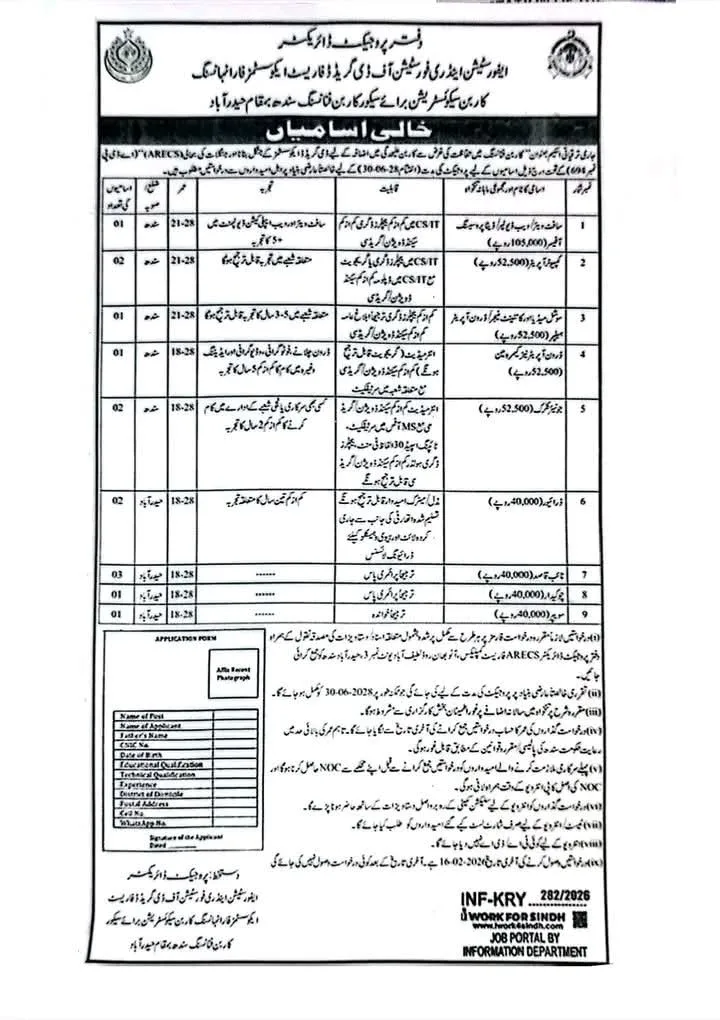 دفتر پروجیکٹ ڈائریکٹر
ایفورسٹیشن اینڈ ری فورسٹیشن آف ڈی گریڈڈ فاریسٹ ایکوسسٹمز فار انہانسنگ
کاربن سیکوئسٹریشن برائے سیکور کاربن فنانسنگ سندھ بمقام حیدرآباد
خالی اسامیاں
جاری ترقیاتی اسکیم بعنوان "کاربن فنانسنگ میں حفاظت کی غرض سے کاربن علیحدگی میں اضافہ کے لیے ڈی گریڈڈ ایکوسسٹمز کے جنگل بنانا اور جنگلات کی بحالی (ARECS)" (اے ڈی پی
نمبر 694) کے تحت درج ذیل اسامیوں کے لیے پروجیکٹ کی مدت (اختتام 28-06-30) کے لیے خالصتاً عارضی بنیاد پر اہل امیدواروں سے درخواستیں مطلوب ہیں۔
نمبر شمار | اسامی کا نام اور مجموعی ماہانہ تنخواہ | قابلیت | تجربہ | عمر | ضلع/صوبہ | اسامیوں کی تعداد
1 | سافٹ ویئر/ویب ڈیولپر/ڈیٹا پروسیسنگ آفیسر (105,000 روپے) | CS/IT میں کم از کم بیچلرز ڈگری کم از کم سیکنڈ ڈویژن/گریڈ سی | سافٹ ویئر اور ویب ایپلی کیشن ڈیولپمنٹ میں 5+ کا تجربہ | 21-28 | سندھ | 01
2 | کمپیوٹر آپریٹر (52,500 روپے) | CS/IT میں بیچلرز ڈگری یا گریجویٹ مع CS/IT میں ڈپلومہ کم از کم سیکنڈ ڈویژن/گریڈ سی | متعلقہ شعبے میں تجربہ قابل ترجیح ہوگا | 21-28 | سندھ | 02
3 | سوشل میڈیا اور کانٹینٹ منیجر/ڈرون آپریٹر ہیلپر (52,500 روپے) | کم از کم بیچلرز ڈگری ترجیحاً ابلاغ عامہ کم از کم سیکنڈ ڈویژن/گریڈ سی | متعلقہ شعبے میں 3-5 سال کا تجربہ قابل ترجیح ہوگا | 21-28 | سندھ | 01
4 | ڈرون آپریٹر نیز کیمرہ مین (52,500 روپے) | انٹرمیڈیٹ (گریجویٹ قابل ترجیح ہونگے) کم از کم سیکنڈ ڈویژن/گریڈ سی مع متعلقہ شعبہ میں سرٹیفکیٹ | ڈرون چلانے، فوٹوگرافی، وڈیو گرافی اور ایڈیٹنگ وغیرہ میں کام کا کم از کم 5 سال کا تجربہ | 18-28 | سندھ | 01
5 | جونیئر کلرک (52,500 روپے) | انٹرمیڈیٹ کم از کم سیکنڈ ڈویژن/گریڈ سی مع MS آفس میں سرٹیفکیٹ، ٹائپنگ اسپیڈ 30 الفاظ فی منٹ، بیچلرز ڈگری ہولڈر کم از کم سیکنڈ ڈویژن/گریڈ سی قابل ترجیح ہونگے | کسی بھی سرکاری یا نجی شعبے کے ادارے میں کام کرنے کا کم از کم 2 سال کا تجربہ | 18-28 | سندھ | 02
6 | ڈرائیور (40,000 روپے) | مڈل/میٹرک امیدوار قابل ترجیح ہونگے تسلیم شدہ اتھارٹی کی جانب سے جاری کردہ لائٹ اور ہیوی وہیکلز کیلئے ڈرائیونگ لائسنس | کم از کم تین سال کا متعلقہ تجربہ | 18-28 | حیدرآباد | 02
7 | نائب قاصد (40,000 روپے) | ترجیحاً پرائمری پاس | ------ | 18-28 | حیدرآباد | 03
8 | چوکیدار (40,000 روپے) | ترجیحاً پرائمری پاس | ------ | 18-28 | حیدرآباد | 01
9 | سویپر (40,000 روپے) | ترجیحاً خواندہ | ------ | 18-28 | حیدرآباد | 01
(i) درخواستیں لازماً مقررہ درخواست فارمز پر ہر طرح سے مکمل پر شدہ بشمول متعلقہ اسناد/دستاویزات کی مصدقہ نقول کے ہمراہ
دفتر پروجیکٹ ڈائریکٹر ARECS فاریسٹ کمپلیکس، آٹو بھان روڈ لطیف آباد یونٹ نمبر 3، حیدرآباد سندھ کو جمع کرائی
جائیں۔
(ii) تقرری خالصتاً عارضی بنیاد پر پروجیکٹ کی مدت کے لیے کی جائے گی جو مذکورہ طور پر 2028-06-30 کو مکمل ہو جائے گا۔
(iii) مقررہ شرح پر تنخواہ میں سالانہ اضافے پر غور اطمینان بخش کارگزاری سے مشروط ہوگا۔
(iv) درخواست گذاروں کی عمر کا حساب درخواستیں جمع کرانے کی آخری تاریخ سے لگایا جائے گا۔ تاہم عمر کی بالائی حد میں
رعایت حکومت سندھ کی پالیسی/مقررہ قوانین کے مطابق قابل غور ہوگی۔
(v) پہلے سرکاری ملازمت کرنے والے امیدواروں کو درخواستیں جمع کرانے سے قبل اپنے محکمے سے NOC حاصل کرنا ہوگا اور
NOC کی اصل کاپی انٹرویو کے وقت ہمراہ لانی ہوگی۔
(vi) درخواست گذاروں کو انٹرویو کے لیے سلیکشن کمیٹی کے روبرو اصل دستاویزات کے ساتھ حاضر ہونا پڑے گا۔
(vii) ٹیسٹ/انٹرویو کے لیے صرف شارٹ لسٹ کیے گئے امیدواروں کو طلب کیا جائے گا۔
(viii) انٹرویو کے لیے کوئی ٹی اے/ڈی اے نہیں دیا جائے گا۔
(ix) درخواستیں وصول کرنے کی آخری تاریخ 2026-02-16 ہے۔ آخری تاریخ کے بعد کوئی درخواست وصول نہیں کی جائے گی
APPLICATION FORM
Affix Recent
Photograph
Name of Post
Name of Applicant
Father's Name
CNIC No.
Date of Birth
Educational Qualification
Technical Qualification
Experience
District of Domicile
Postal Address
Cell No.
WhatsApp No.
Signature of the Applicant
Dated
دستخط: پروجیکٹ ڈائریکٹر
ایفورسٹیشن اینڈ ری فورسٹیشن آف ڈی گریڈڈ فاریسٹ
ایکوسسٹمز فار انہانسنگ کاربن سیکوئسٹریشن برائے سیکور
کاربن فنانسنگ سندھ بمقام حیدرآباد
INF-KRY 282/2026
I WORK FOR SINDH
www.iwork4sindh.com
JOB PORTAL BY
INFORMATION DEPARTMENT